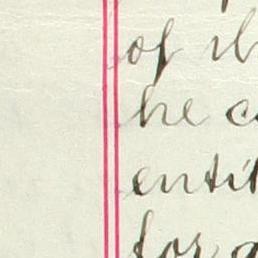 of th
he c
entit
for a